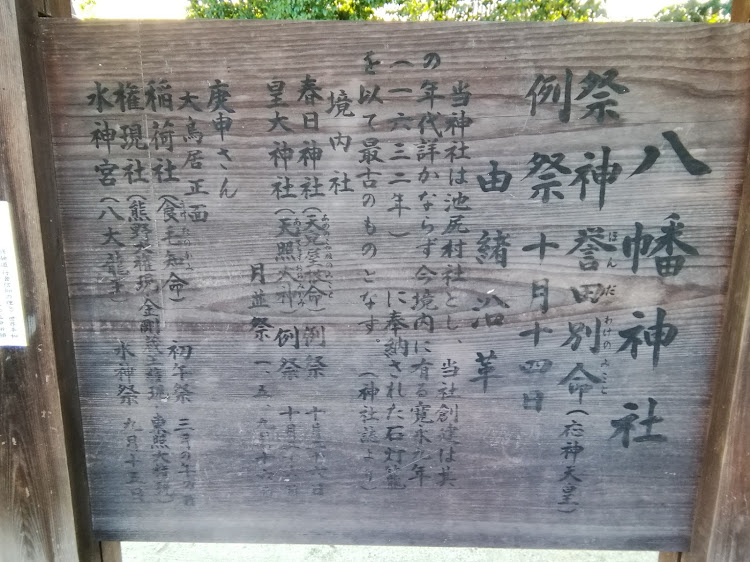 八幡神社
祭神 誉田別命(応神天皇)
ほんだわけのみこと
例祭 十月十四日
由緒沿革
当神社は池尻村社とし、当社創建は其
の年代詳かならず今境内に有る寛永九年
(一六三二年)に奉納された石灯籠
を以て最古のものとなす。(神社誌より)
境内社
春日神社(天児屋根命)例祭
皇大神社(天照大神)例祭 十月
月並祭 一、五、九月
庚申さん
大鳥居正面
稲荷社(食毛知命)初午祭 三月の午の日
権現社(熊野大権現 金剛蔵王権現 東照大権現)
水神宮(八大龍王)水神祭 九月十五日